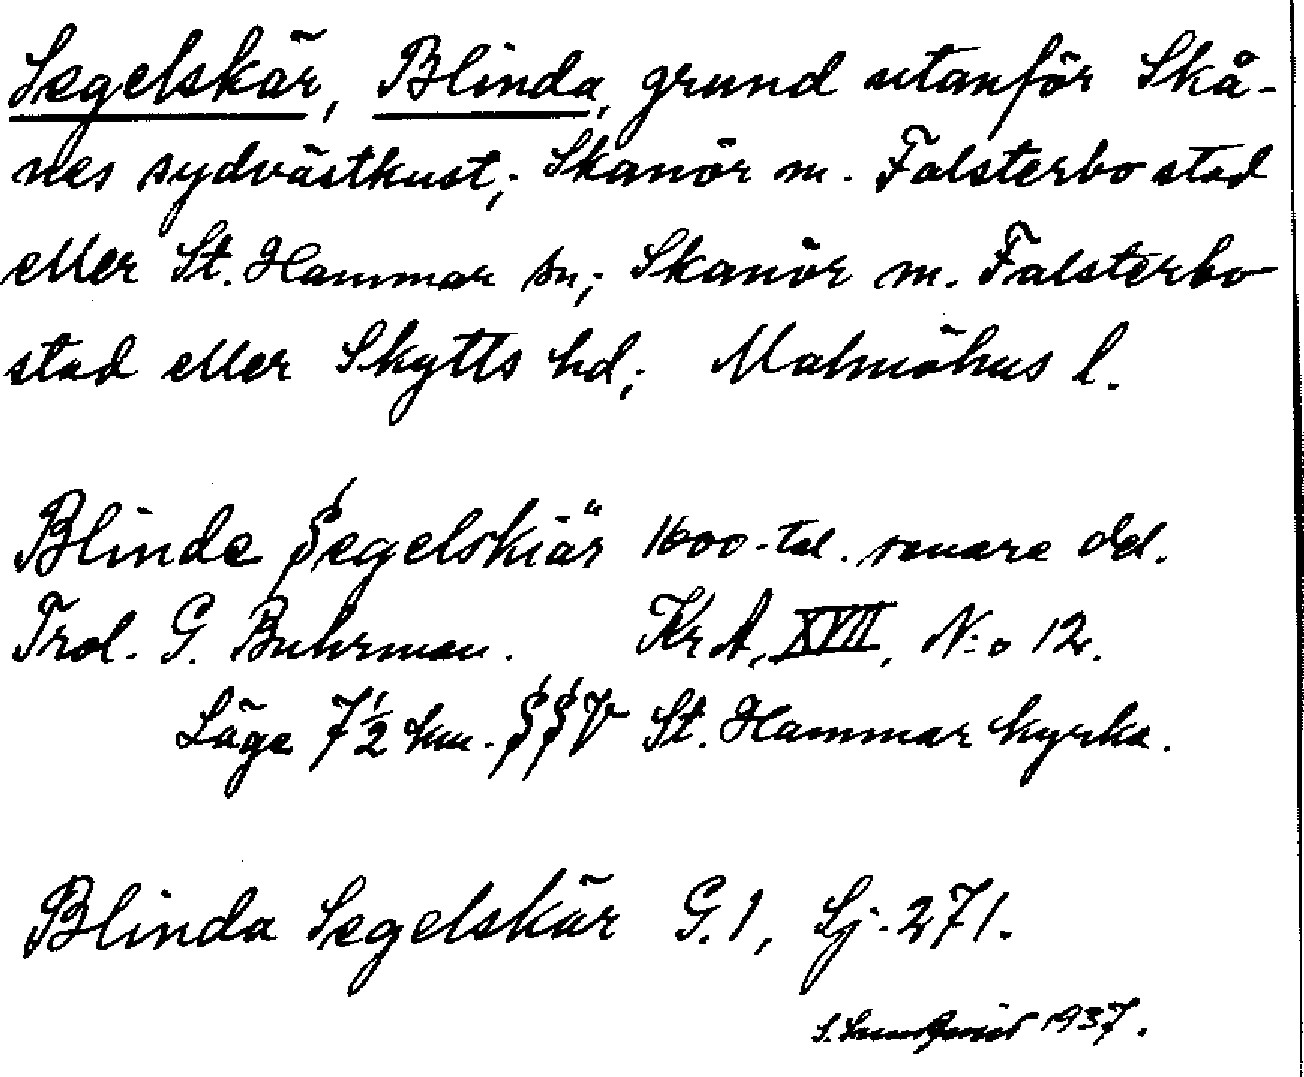 Segelskär, Blinda, grund utanför Skå-
nes sydvästkust; Skanör m. Falsterbo stad
eller St. Hammar sn; Skanör m. Falsterbo
stad eller Skytts hd; Malmöhus l.
Blinde Segelskiär 1600-tal. senare del.
Trol. G. Buhrman. Kr A, XVII, N:o 12.
Läge 7½ km. SSV St. Hammar kyrka.
Blinda Segelskär G.1, Sj. 271.
S. Lundqvist 1937.